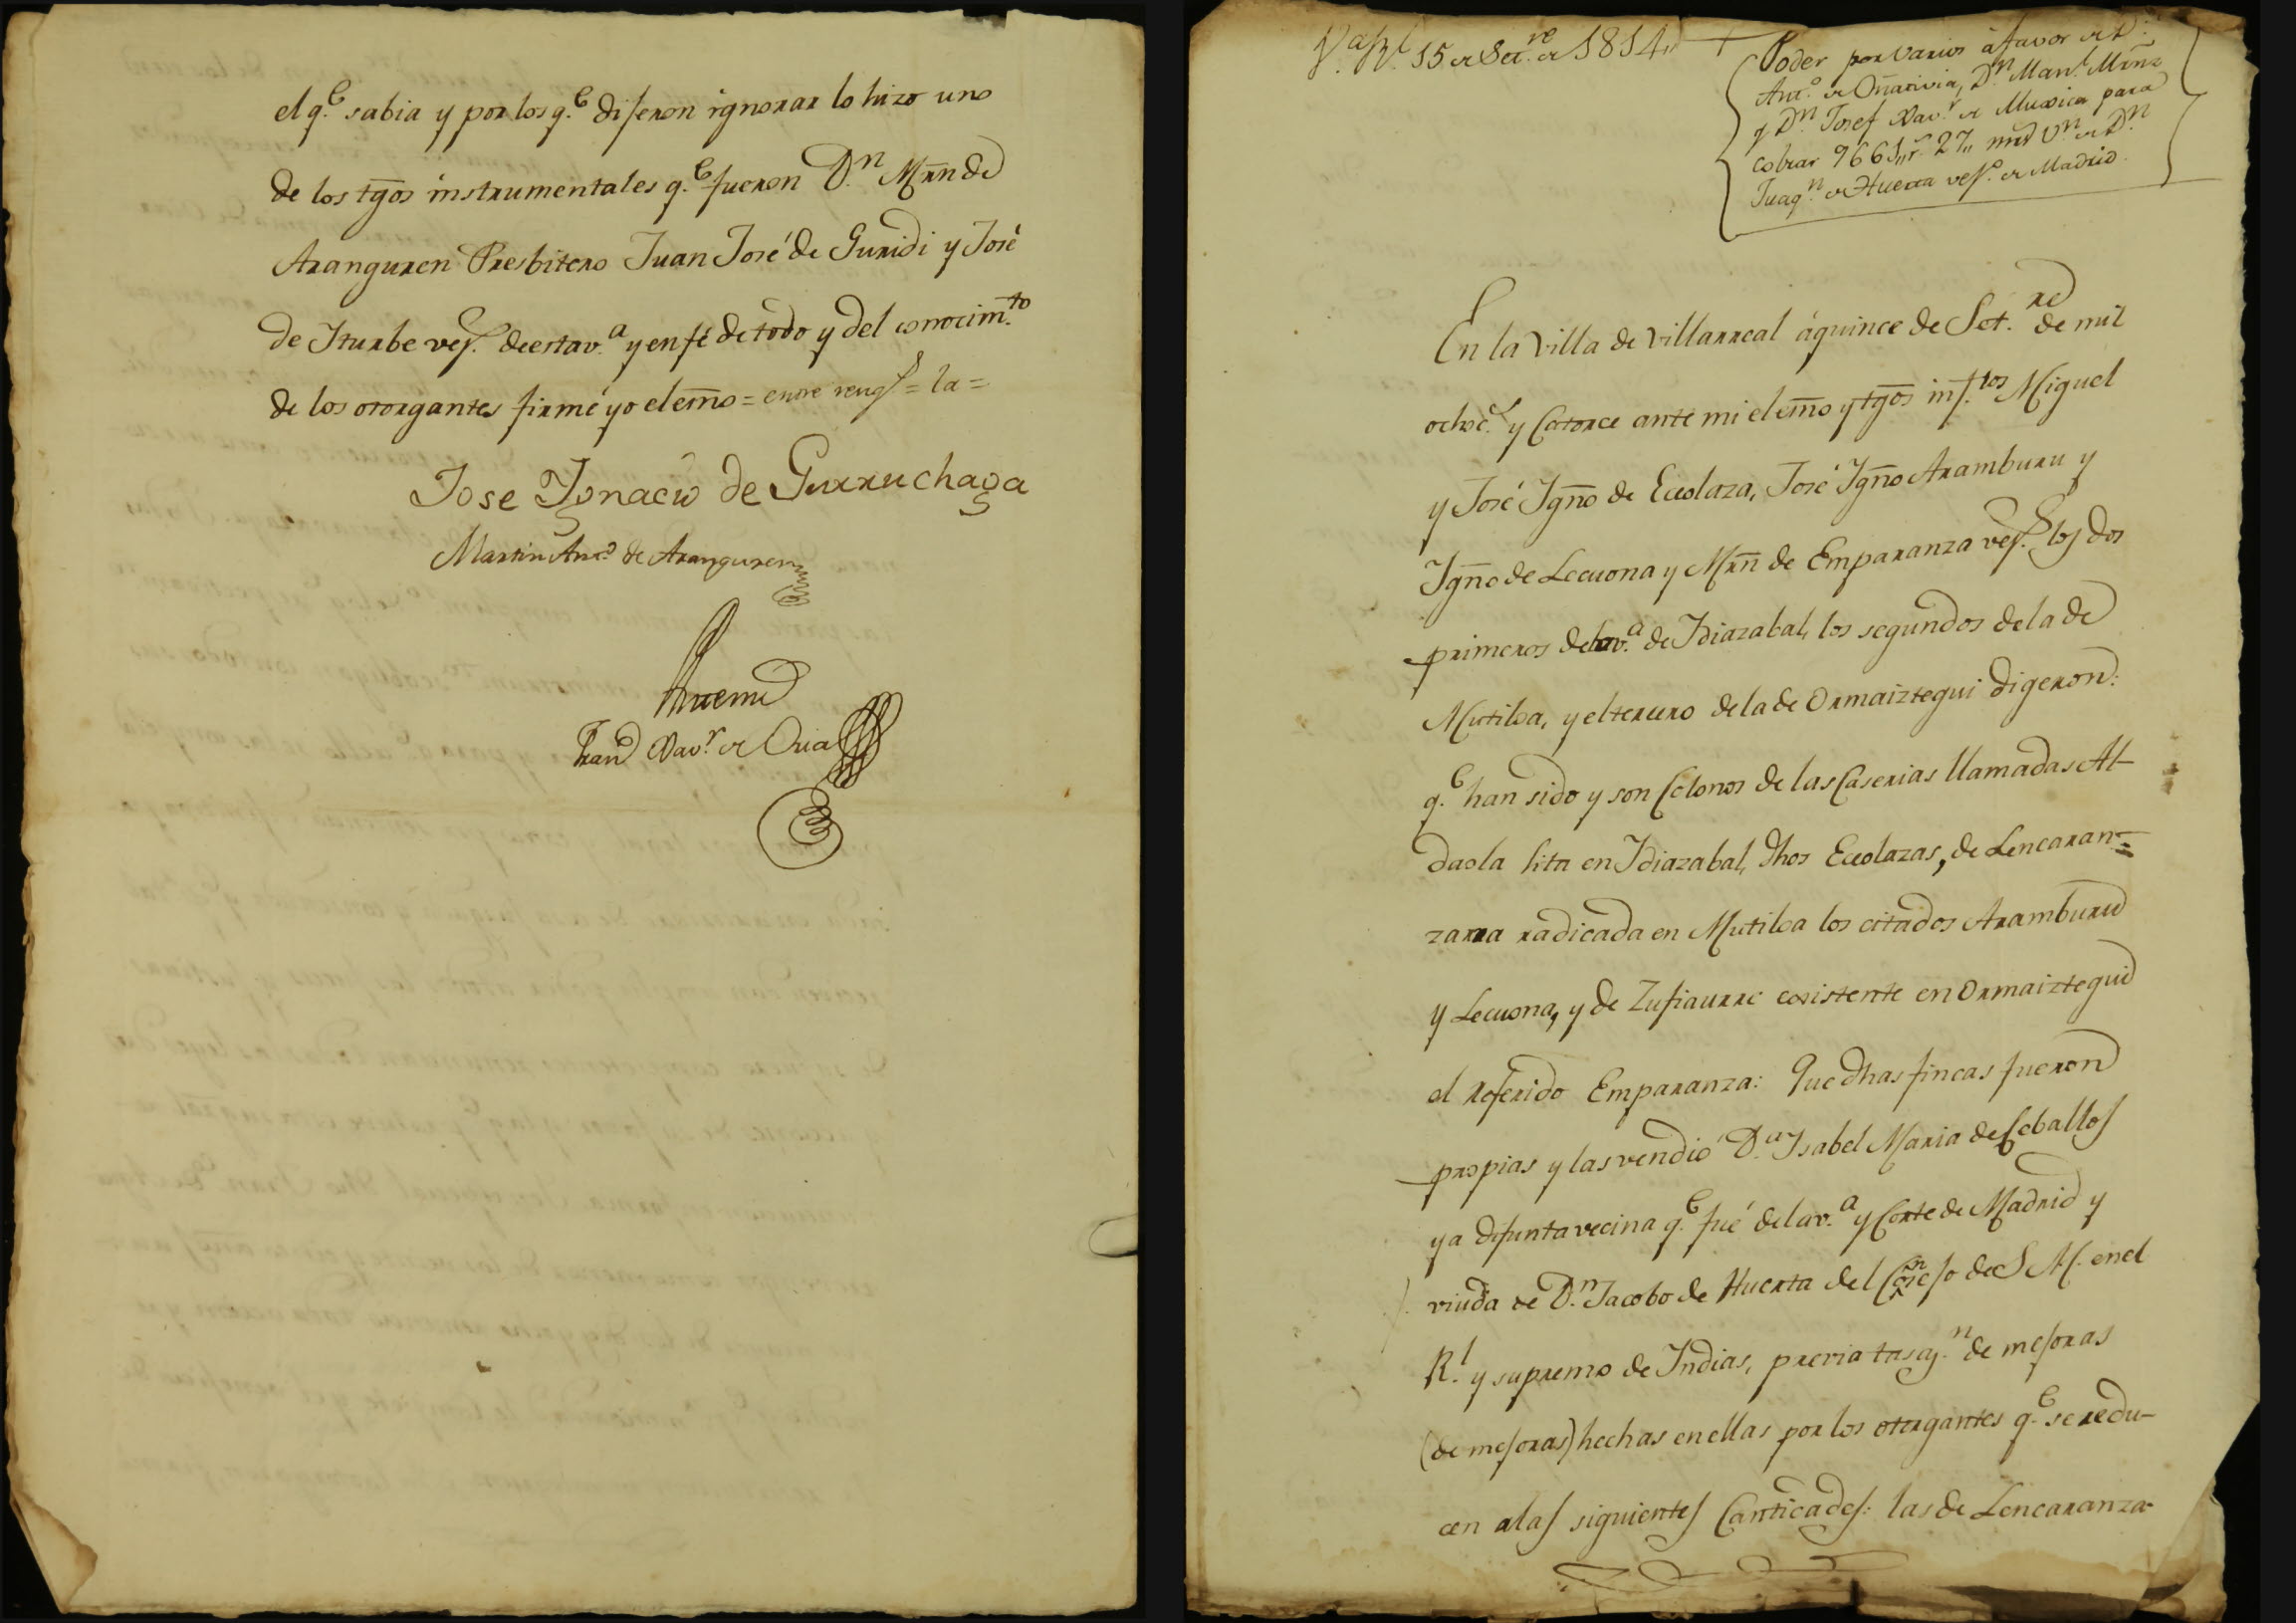 el q.e sabia y por los q.e dijeron ignorar lo hizo uno
de los tgos instrumentales q.e fueron D.n Mrn de
Aranguren Presbitero Juan José de Guridi y José
de Iturbe ves.s de esta v.a y en fé de todo y del conocim.to
de los otorgantes firmé yo el emo = entre reng.s = la =
Jose Ygnacio de Gurruchaga
Martin Ant.o de Aranguren
Antemi
Fran.co Xav.r de Oria
V.a R.l 15 de Set.re de 1814
Poder por varios á favor de D.n
Ant.o de Oñativia, D.n Man.l Mrnz
y D.n Josef Xav.r de Muxica para
cobrar 9661,, r.s 27,, mrs V.n de D.n
Juaq.n de Huerta ves.o de Madrid.
En la Villa de Villarreal á quince de Set.re de mil
ochoc.s y Catorce ante mi el emo y tgos inf.tos Miguel
y José Ygno de Ecolaza, José Ygno Aramburu y
Ygno de Lecuona y Mrn de Emparanza ves.s los dos
primeros de la v.a de Idiazabal, los segundos de la de
Mutiloa, y el tercero de la de Ormaiztegui digeron:
q.e han sido y son Colonos de las Caserias llamadas Al-
daola sita en Idiazabal, dhos Ecolazas, de Lencaran=
zarra radicada en Mutiloa los citados Aramburu
y Lecuona, y de Zufiaurre existente en Ormaiztegui
el referido Emparanza: Que dhas fincas fueron
propias y las vendió D.a Isabel Maria de Ceballos
ya difunta vecina q.e fué de la v.a y Corte de Madrid y
viuda de D.n Jacobo de Huerta del Consejo de S. M. en el
R.l y supremo de Indias, previa tasac.n de mejoras
(de mejoras) hechas en ellas por los otorgantes q.e se redu-
cen a las siguientes Canticades: las de Lencaranza-